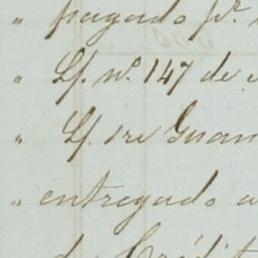 " pagado pr.
" Lf. nº. 147 de
" Lf. sre Guan
" entregado a
de Crédit